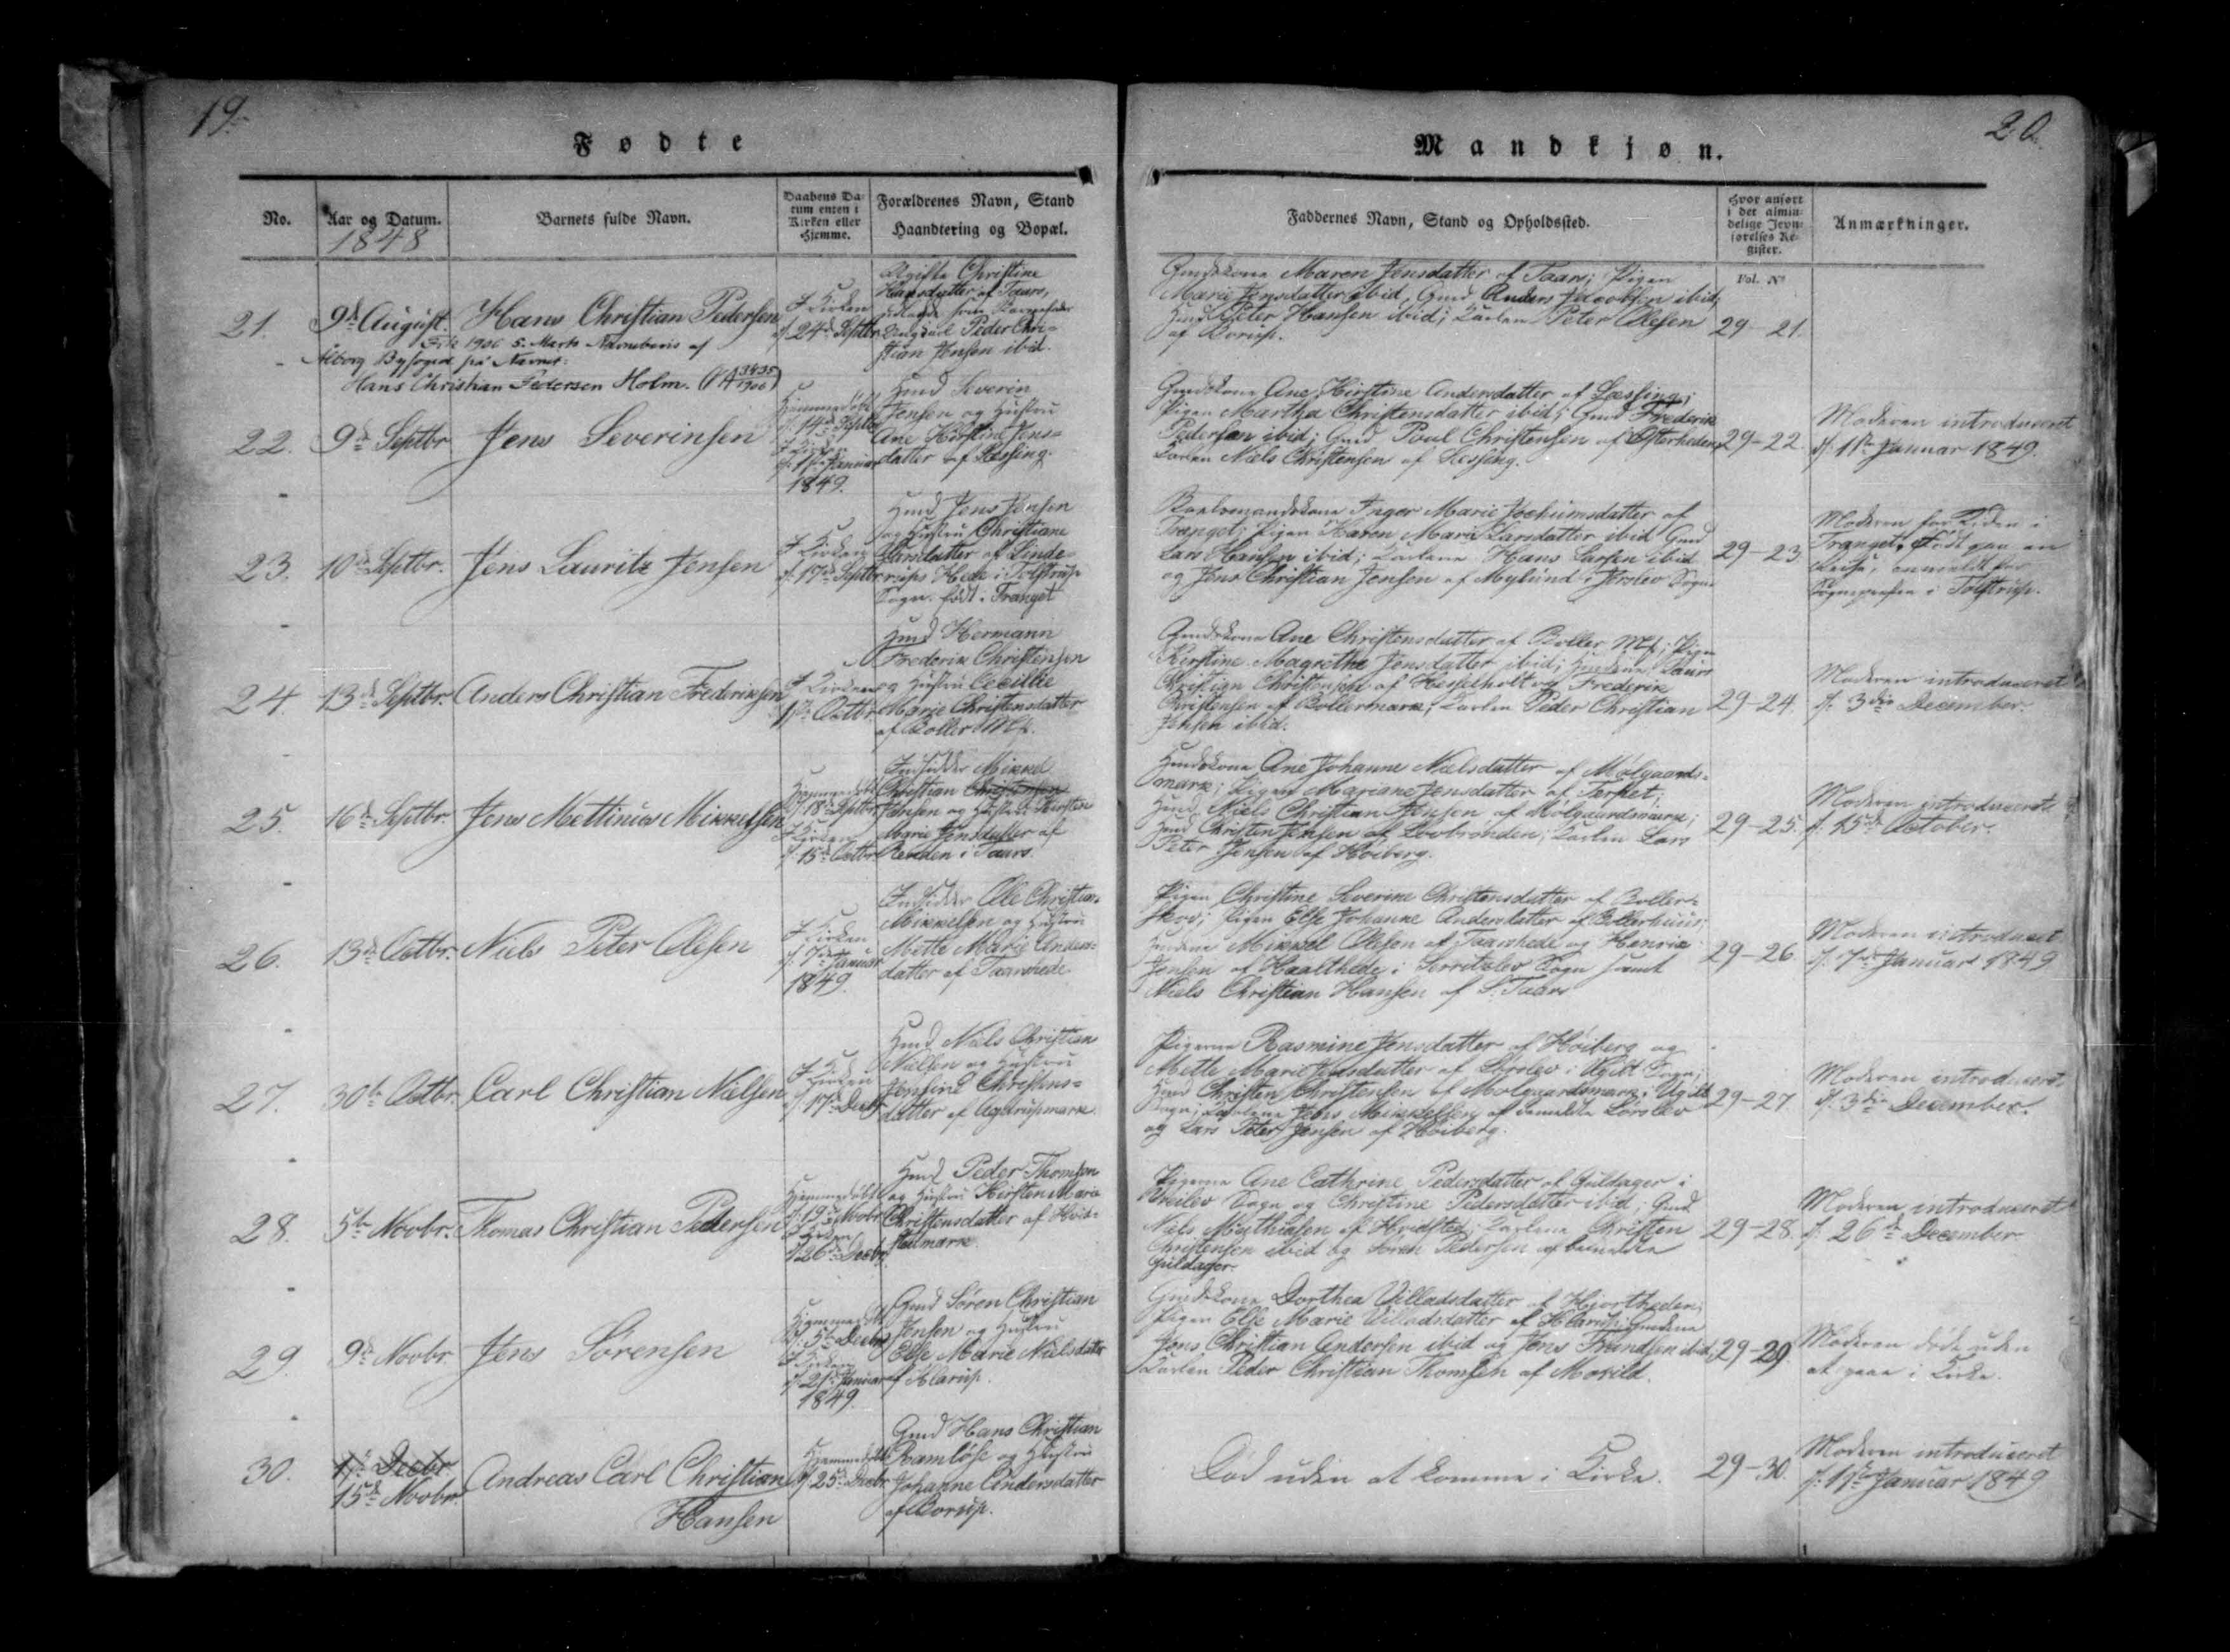 19.
Fødte
No.
Aar og Datum.
1848
Barnets fulde Navn.
Daabens Da-
tum enten i
Kirken eller
Hjemme.
Forældrenes Navn, Stand
Haandtering og Bopæl.
21.
9de August.
Hans Christian Pedersen
Fik 1906 5. Marts Navnebevis af
Ålborg Byfoged på Navnet:
Hans Christian Pedersen Holm.
I Kirken
d. 24de Septbr
Ugifte Christine
Hansdatter af Taars,
udlagde som Barnefader
Peder Chri-
stian Jensen ibid.
22.
9de Septbr
Jens Severinsen
Hjemmedøbt
d. 14de Septbr
I Kirken
Januar
1849.
Huusmd Severin
Jensen og Hustru
Ane Kirstine Jens-
datter af Læssing.
23.
10de Septbr.
Jens Lauritz Jensen
I Kirken
d. 17de Septbr
Huusmd Jens Jensen
og Hustru Christiane
Larsdatter af Linde-
Hede i Tolstrup
Sogn. født i Tranget
24.
13de Septbr.
Anders Christian Frederiksen
I Kirken
1ste Octbr
Huusmd Hermann
Frederik Christensen
og Hustru Cecillie
Marie Christensdatter
af Boller Mk.
25.
16de Septbr.
Jens Mettinus Mikkelsen
Hjemmedøbt
d. 18de Septbr
I Kirken
d. 15de Octbr
Indsidder Mikkel
Christian Christensen
Jensen og Hustru Kirsten
Marie Jensdatter af
Renden i Taars
26.
13de Octbr.
Niels Peter Olesen
I Kirken
d. 7de Januar
1849
Indsidder Ole Christian
Mikkelsen og Hustru
Mette Marie Anders-
datter af Taarshede
27.
30te Octbr.
Carl Christian Nielsen
I Kirken
Decbr
Huusmd Niels Christian
Nielsen og Hustru
Jensine Christens-
datter af Agdrupmark.
28.
5te Novbr.
Thomas Christian Pedersen
Hjemmedøbt
d. 19de Novbr
I Kirken
d. 26de Decbr
Huusmd Peder Thomsen
og Hustru Kirsten Marie
Christensdatter af Hvid-
stedmark.
29.
9de Novbr.
Jens Sørensen
Hjemmedøbt
d. 5te Decbr
I Kirken
d. 21de Januar
1849.
Gmd Søren Christian
Jensen og Hustru
Else Marie Nielsdatter
af Klarup.
30.
Decbr.
15de Novbr.
Andreas Carl Christian
Hansen
Hjemmedøbt
d. 25de Decbr
Gmd Hans Christian
Ramløse og Hustru
Johanne Andersdatter
af Borup.
20.
Mandkjøn.
Faddernes Navn, Stand og Opholdssted.
Hvor anført
i det almin-
delige Jevn-
førelses Re-
gister.
Anmærkninger.
Fol. No
Gmdskone Maren Jensdatter af Taars; Pigen
Marie Jensdatter ibid, Gmd Anders Jacobsen ibid;
Huusmd Peter Hansen ibid; Karlen Peter Olesen
af Borup.
29-21.
Gmdskone Ane Kirstine Andersdatter af Læssing;
Pigen Martha Christensdatter ibid; Gmd Frederik
Pedersen ibid; Gmd Poul Christensen af Østerheden;
Karlen Niels Christensen af Læssing.
29-22.
Moderen introduceret
d. 1ste Januar 1849.
Boelsmandskone Inger Marie Jochumsdatter af
Tranget; Pigen Karen Marie Larsdatter ibid Gmd
Lars Hansen ibid; Karlene Hans Larsen ibid
og Jens Christian Jensen af Mylund i Jerslev Sogn
29-23.
Moderen før Tiden i
Tranget, født paa en
Reise, anmeldt for
Sognepræsten i Tolstrup.
Gmdskone Ane Christensdatter af Boller Mk; Pigen
Kirstine Magrethe Jensdatter ibid; Huusmdene Laurs
Christian Christensen af Hesselholt og Frederik
Christensen af Bollermark; Karlen Peder Christian
Jensen ibid.
29-24.
Moderen introduceret
d. 3die December.
Huusmdskone Ane Johanne Nielsdatter af Mølgaards-
mark; Pigen Mariane Jensdatter af Terpet;
Huusmd Niels Christian Jensen af Mølgaardsmark;
Huusmd Christen Jensen af Lovbrønden; Karlen Lars
Peter Jensen af Høiberg.
29-25.
Moderen introduceret
d. 15de October.
Pigen Christine Severine Christensdatter af Boller-
skov; Pigen Else Johanne Andersdatter af Bollerhuus;
Huusmdene Mikkel Olesen af Taarshede og Henrik
Jensen af Haalthede i Serritslev Sogn samt
Niels Christian Hansen af S. Taars
29-26.
Moderen introduceret
d. 7de Januar 1849
Pigerne Rasmine Jensdatter af Høiberg og
Mette Marie Jensdatter af Lørslev i Ugilt Sogn;
Huusmd Christen Christensen af Molgaardsmark, Ugilt
Sogn; Karlene Jens Mikkelsen af bemeldte Lørslev
og Lars Peter Jensen af Høiberg.
29-27
Moderen introduceret
d. 3die December.
Pigerne Ane Cathrine Pedersdatter af Guldager i
Vreilev Sogn og Christine Pedersdatter ibid; Gmd
Niels Mathiasen af Hvidsted; Karlene Christen
Christensen ibid og Søren Pedersen af bemeldte
Guldager.
29-28.
Moderen introduceret
d. 26de December.
Gmdskone Dorthea Villadsdatter af Hjortheden;
Pigen Else Marie Villadsdatter af Klarup; Gmdene
Jens Christian Andersen ibid og Jens Trundsen ibid;
Karlen Peder Christian Thomsen af Mokild.
29-29
Moderen døde uden
at gaae i Kirke.
Død uden at komme i Kirke.
29-30.
Moderen introduceret
d. 1ste Januar 1849